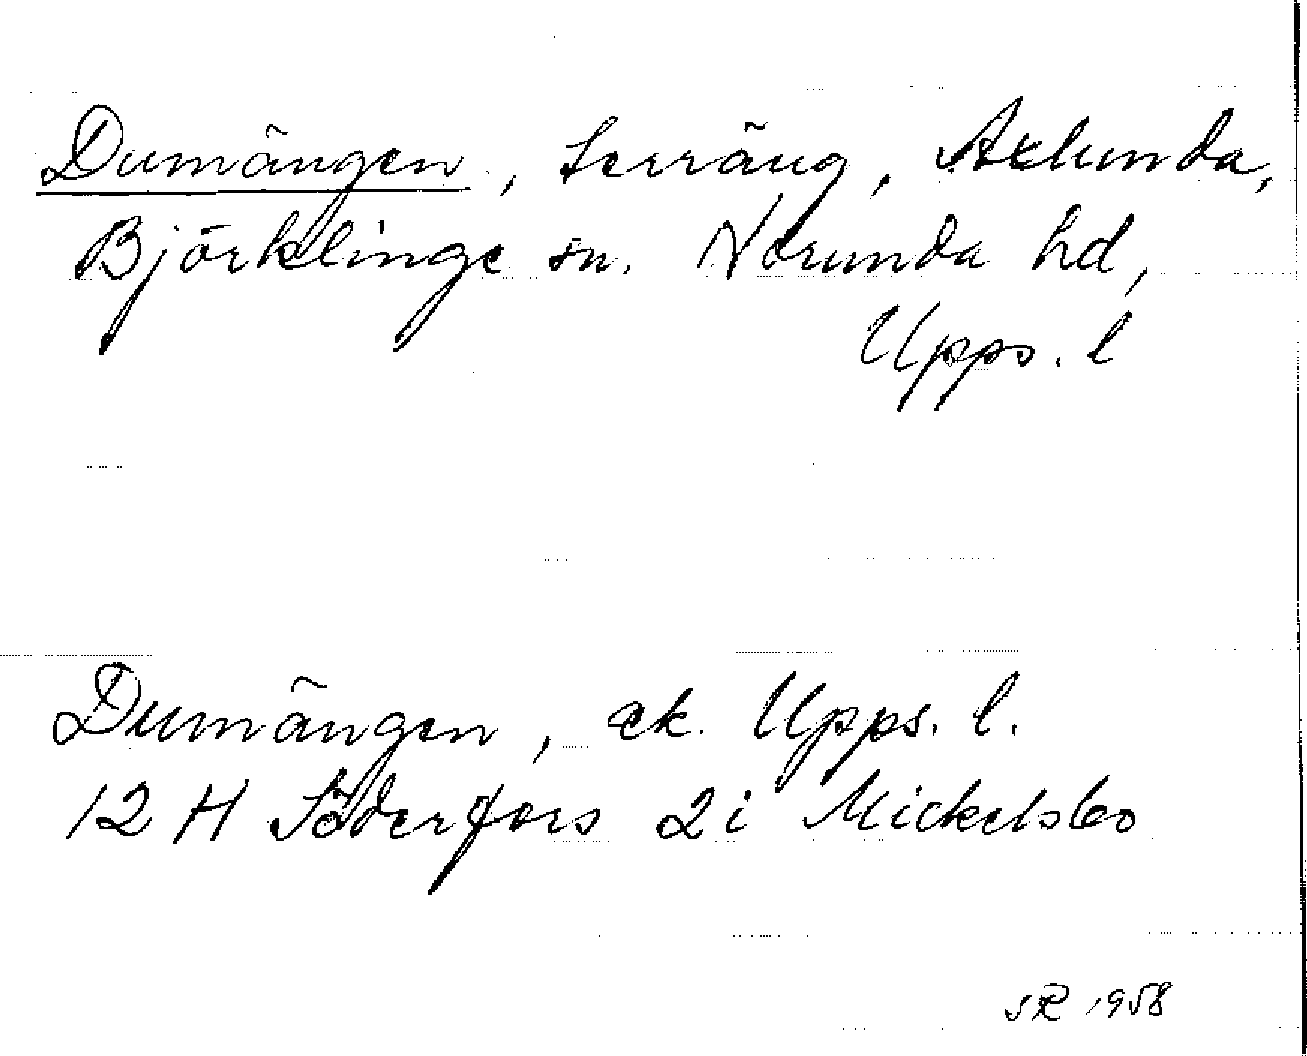 Dumängen, terräng, Axlunda,
Björklinge sn. Norunda hd,
Upps. l
Dumängen, ek. Upps. l.
12 H Söderfors 2i Mickelsbo
SR 1958